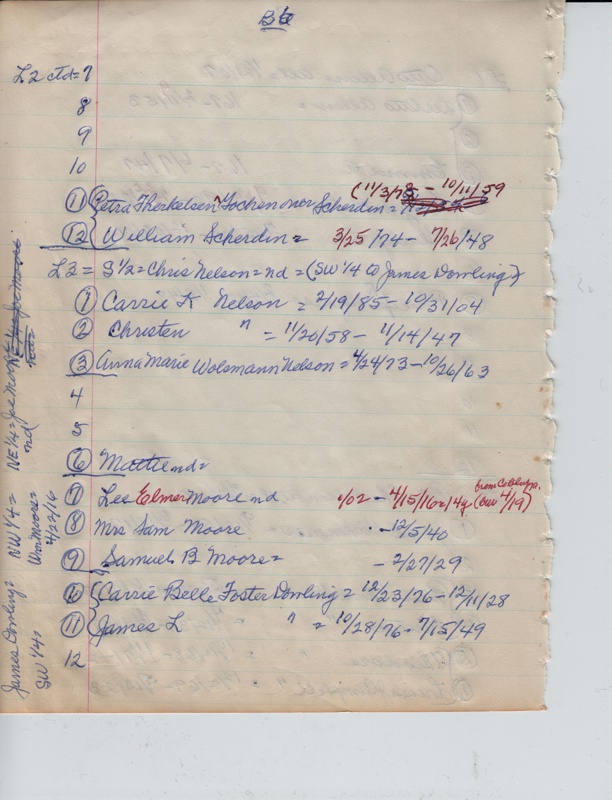 B6
L2 ctd = 7
8
9
10
(11/3/78 - 10/11/59
11 Petra Therkelsen Jochen over Scherdin =
12 William Scherdin = 3/25/74 - 7/26/48
L3 = S 1/2 = Chris Nelson = nd = (SW 1/4 to James Dowling)
1 Carrie K Nelson = 2/19/85 - 10/31/04
2 Christen " = 11/20/58 - 11/14/47
3 Anna Marie Wolsmann Nelson = 4/24/73 - 10/26/63
4
5
6 Mattie nd =
from Col
7 Les Elmer Moore nd 1/02 - 4/15/16 = 14y (4/19)
8 Mrs Sam Moore - 12/5/40
9 Samuel B Moore = - 2/27/29
10 Carrie Belle Foster Dowling = 12/23/76 - 12/11/28
11 James L " = 10/28/76 - 7/15/49
12
NE 1/4 = Joe Moore
nd
NW 1/4 =
Wm Moore =
4/22/16
James Dowling =
SW 1/4 =